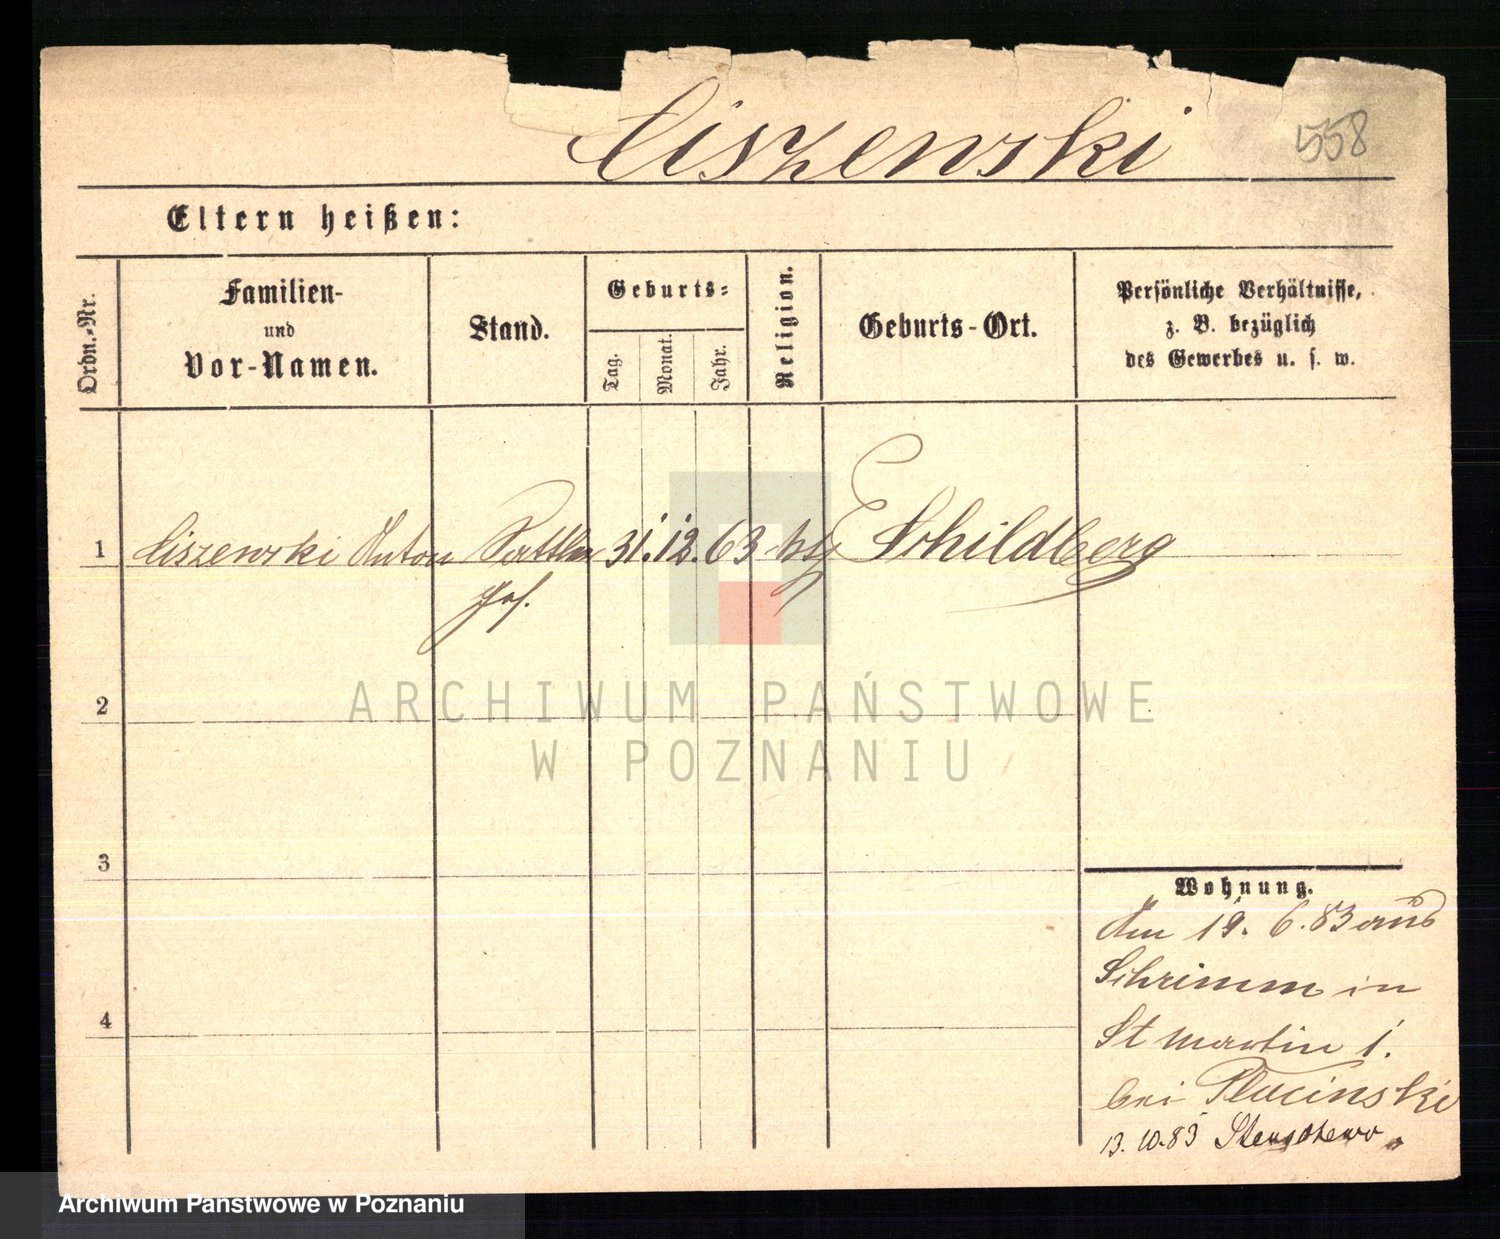 Ciszewski
558
Eltern heißen:
Ordn.-Nr.
Familien-
und
Vor-Namen.
Stand.
Geburts-
Tag.
Monat.
Jahr.
Religion.
Geburts-Ort.
Persönliche Verhältnisse,
z. B. bezüglich
des Gewerbes u. s. w.
1 Ciszewski Anton Sattler 31. 12. 63 kth Schildberg
2
3
4
Wohnung.
Am 19. 6. 83 aus
Schrimm in
St Martin 1.
bei Plucinski
13. 10. 83
ARCHIWUM PAŃSTWOWE
W POZNANIU
Archiwum Państwowe w Poznaniu